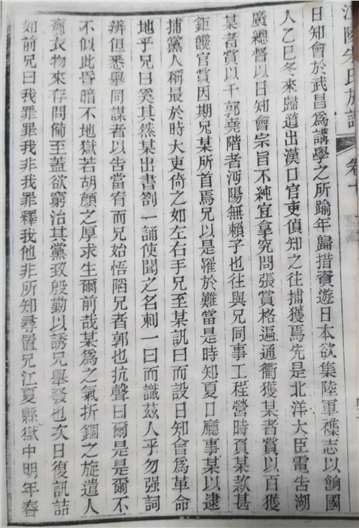 江陵朱氏族譜 卷十
日知會於武昌為講學之所踰年歸措資遊日本欲集陸軍襍志以餉國
人乙巳冬來歸道出漢口官吏偵知之往捕獲焉先是北洋大臣電告湖
廣總督以日知會宗旨不純宜拿究問張賞格遍通衢獲某者賞以百獲
某者賞以千郭堯階者沔陽無賴子也往與兄同事工程營時貢某款甚
鉅饞官賞因期兄某所首焉兄以是罹於難當是時知夏口廳事某以逮
捕黨人稱最於時大吏倚之如左右手兄至某訊曰而設日知會為革命
地乎兄曰奚其然某出書劄一誦使聞之名刺一曰而識茲人乎勿強詞
辨但悉舉同謀者以告當宥而兄始悟陷兄者郭也抗聲曰爾是是爾不
不似此昏暗不地獄若胡顏之厚求生爾前哉某為之氣折錮之旋遣人
齎衣物來存問備至蓋欲窮治其黨故殷勤以誘兄舉發也次日復訊詰
如前兄曰我罪罪我非我罪釋我他非所知尋置兄江夏縣獄中明年春